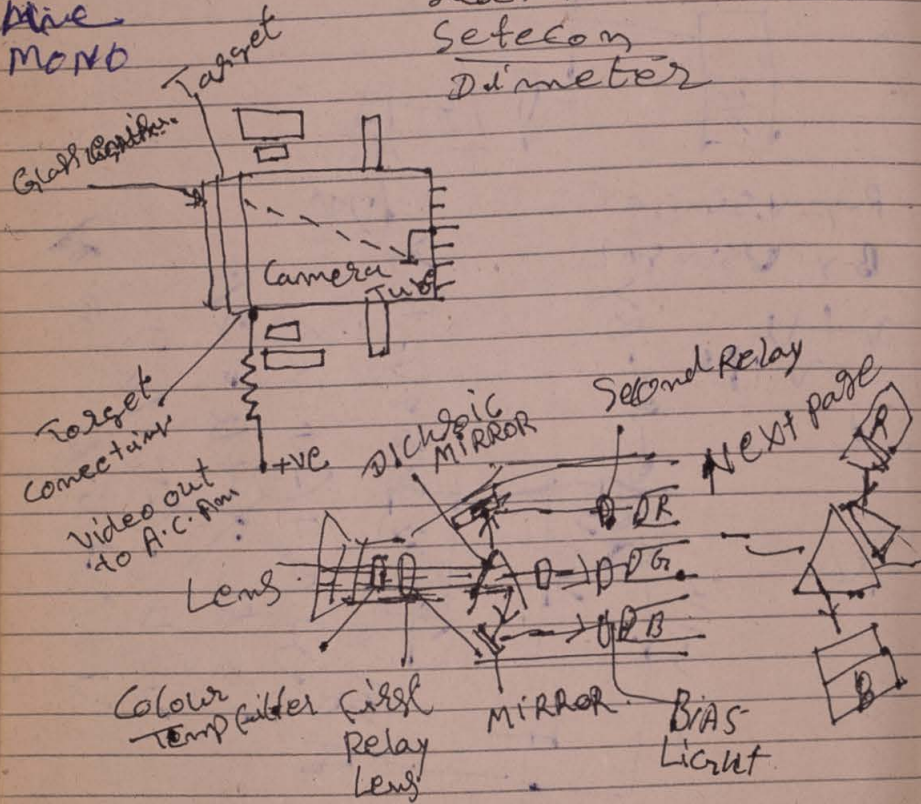 MONO
Setecon
Dimeter
Target
Glass
Camera
Tube
Target
Conectaing
+ve
Video out
to A.C. Am
Second Relay
Next page
Dichroic
MIRROR
R
R
G
B
Lens
B
Colour
Temp filter
First
Relay
Lens
MIRROR
BIAS
Light